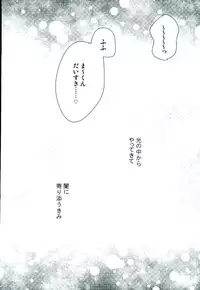 ~~~~~っ
ふふ
まーくん
だいすき……♡
光の中から
やってきて
闇に
寄り添うきみ